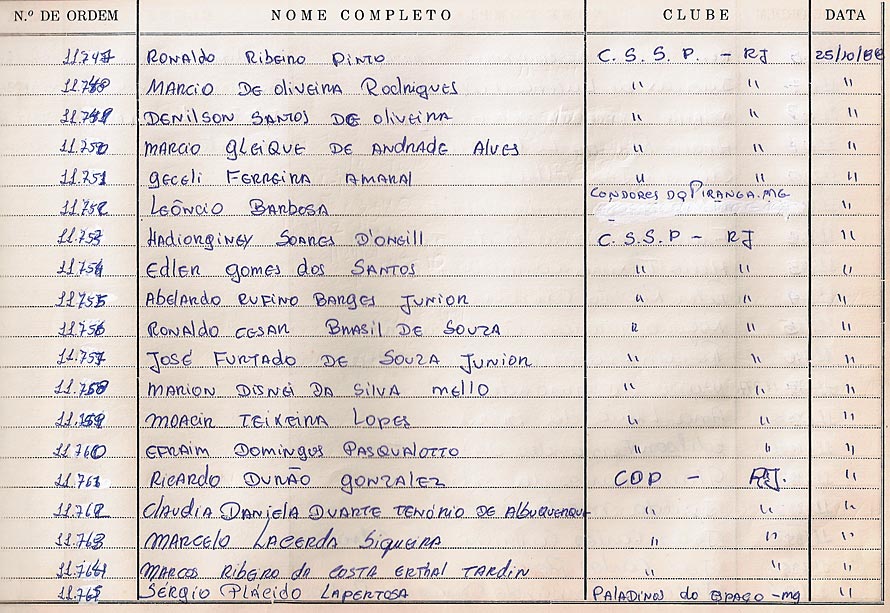 N.º DE ORDEM NOME COMPLETO CLUBE DATA
11.747 RONALDO RIBEIRO PINTO C. S. S. P. - RJ 25/10/88
11.748 MARCIO DE OLIVEIRA RODRIGUES " " "
11.749 DENILSON SANTOS DE OLIVEIRA " " "
11.750 MARCIO GLEIQUE DE ANDRADE ALVES " " "
11.751 GECELI FERREIRA AMARAL " " "
11.752 LEÔNCIO BARBOSA CONDORES DO PIRANGA.MG "
11.753 HADIORGINEY SOARES D'ONEILL C. S. S. P - RJ "
11.754 EDLER GOMES DOS SANTOS " " "
11.755 ABELARDO RUFINO BARGES JUNIOR " " "
11.756 RONALDO CESAR BRASIL DE SOUZA " " "
11.757 JOSÉ FURTADO DE SOUZA JUNIOR " " "
11.758 MARION DISNEI DA SILVA MELLO " " "
11.759 MOACIR TEIXEIRA LOPES " " "
11.760 EFRAIM DOMINGOS PASQUALOTTO " " "
11.761 RICARDO DURÃO GONZALEZ COP - RJ. "
11.762 CLAUDIA DANIELA DUARTE TENÓRIO DE ALBUQUERQUE " " "
11.763 MARCELO LACERDA SIQUEIRA " " "
11.764 MARCOS RIBEIRO DA COSTA ERTHAL TARDIN " " "
11.765 SÉRGIO PLÁCIDO LAPERTOSA PALADINOS DO ESPAÇO - MG "